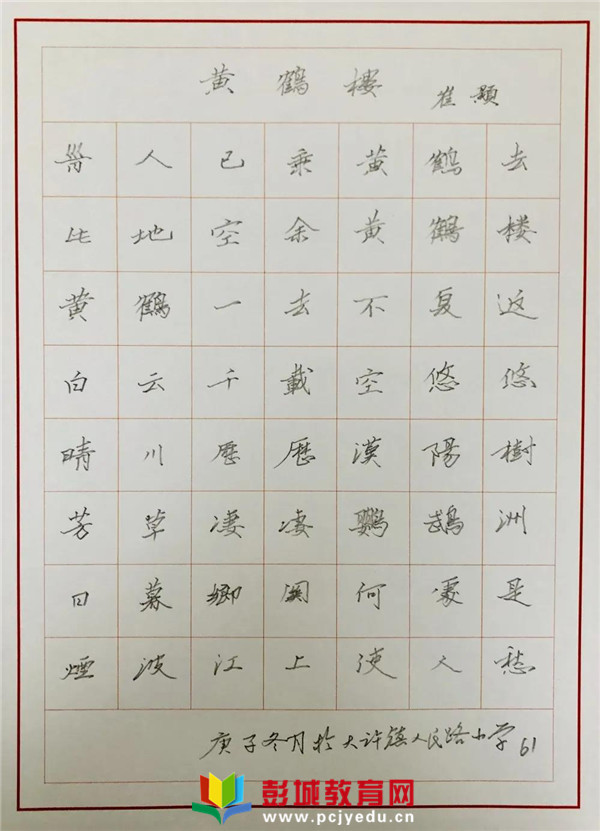 黄鹤楼 崔颢
昔人已乘黄鹤去
此地空余黄鹤楼
黄鹤一去不复返
白云千載空悠悠
晴川歷歷漢陽樹
芳草凄凄鹦鵡洲
日暮鄉関何處是
煙波江上使人愁
庚子冬月於大许镇人民路小学 61
彭城教育网
www.pcjyedu.cn